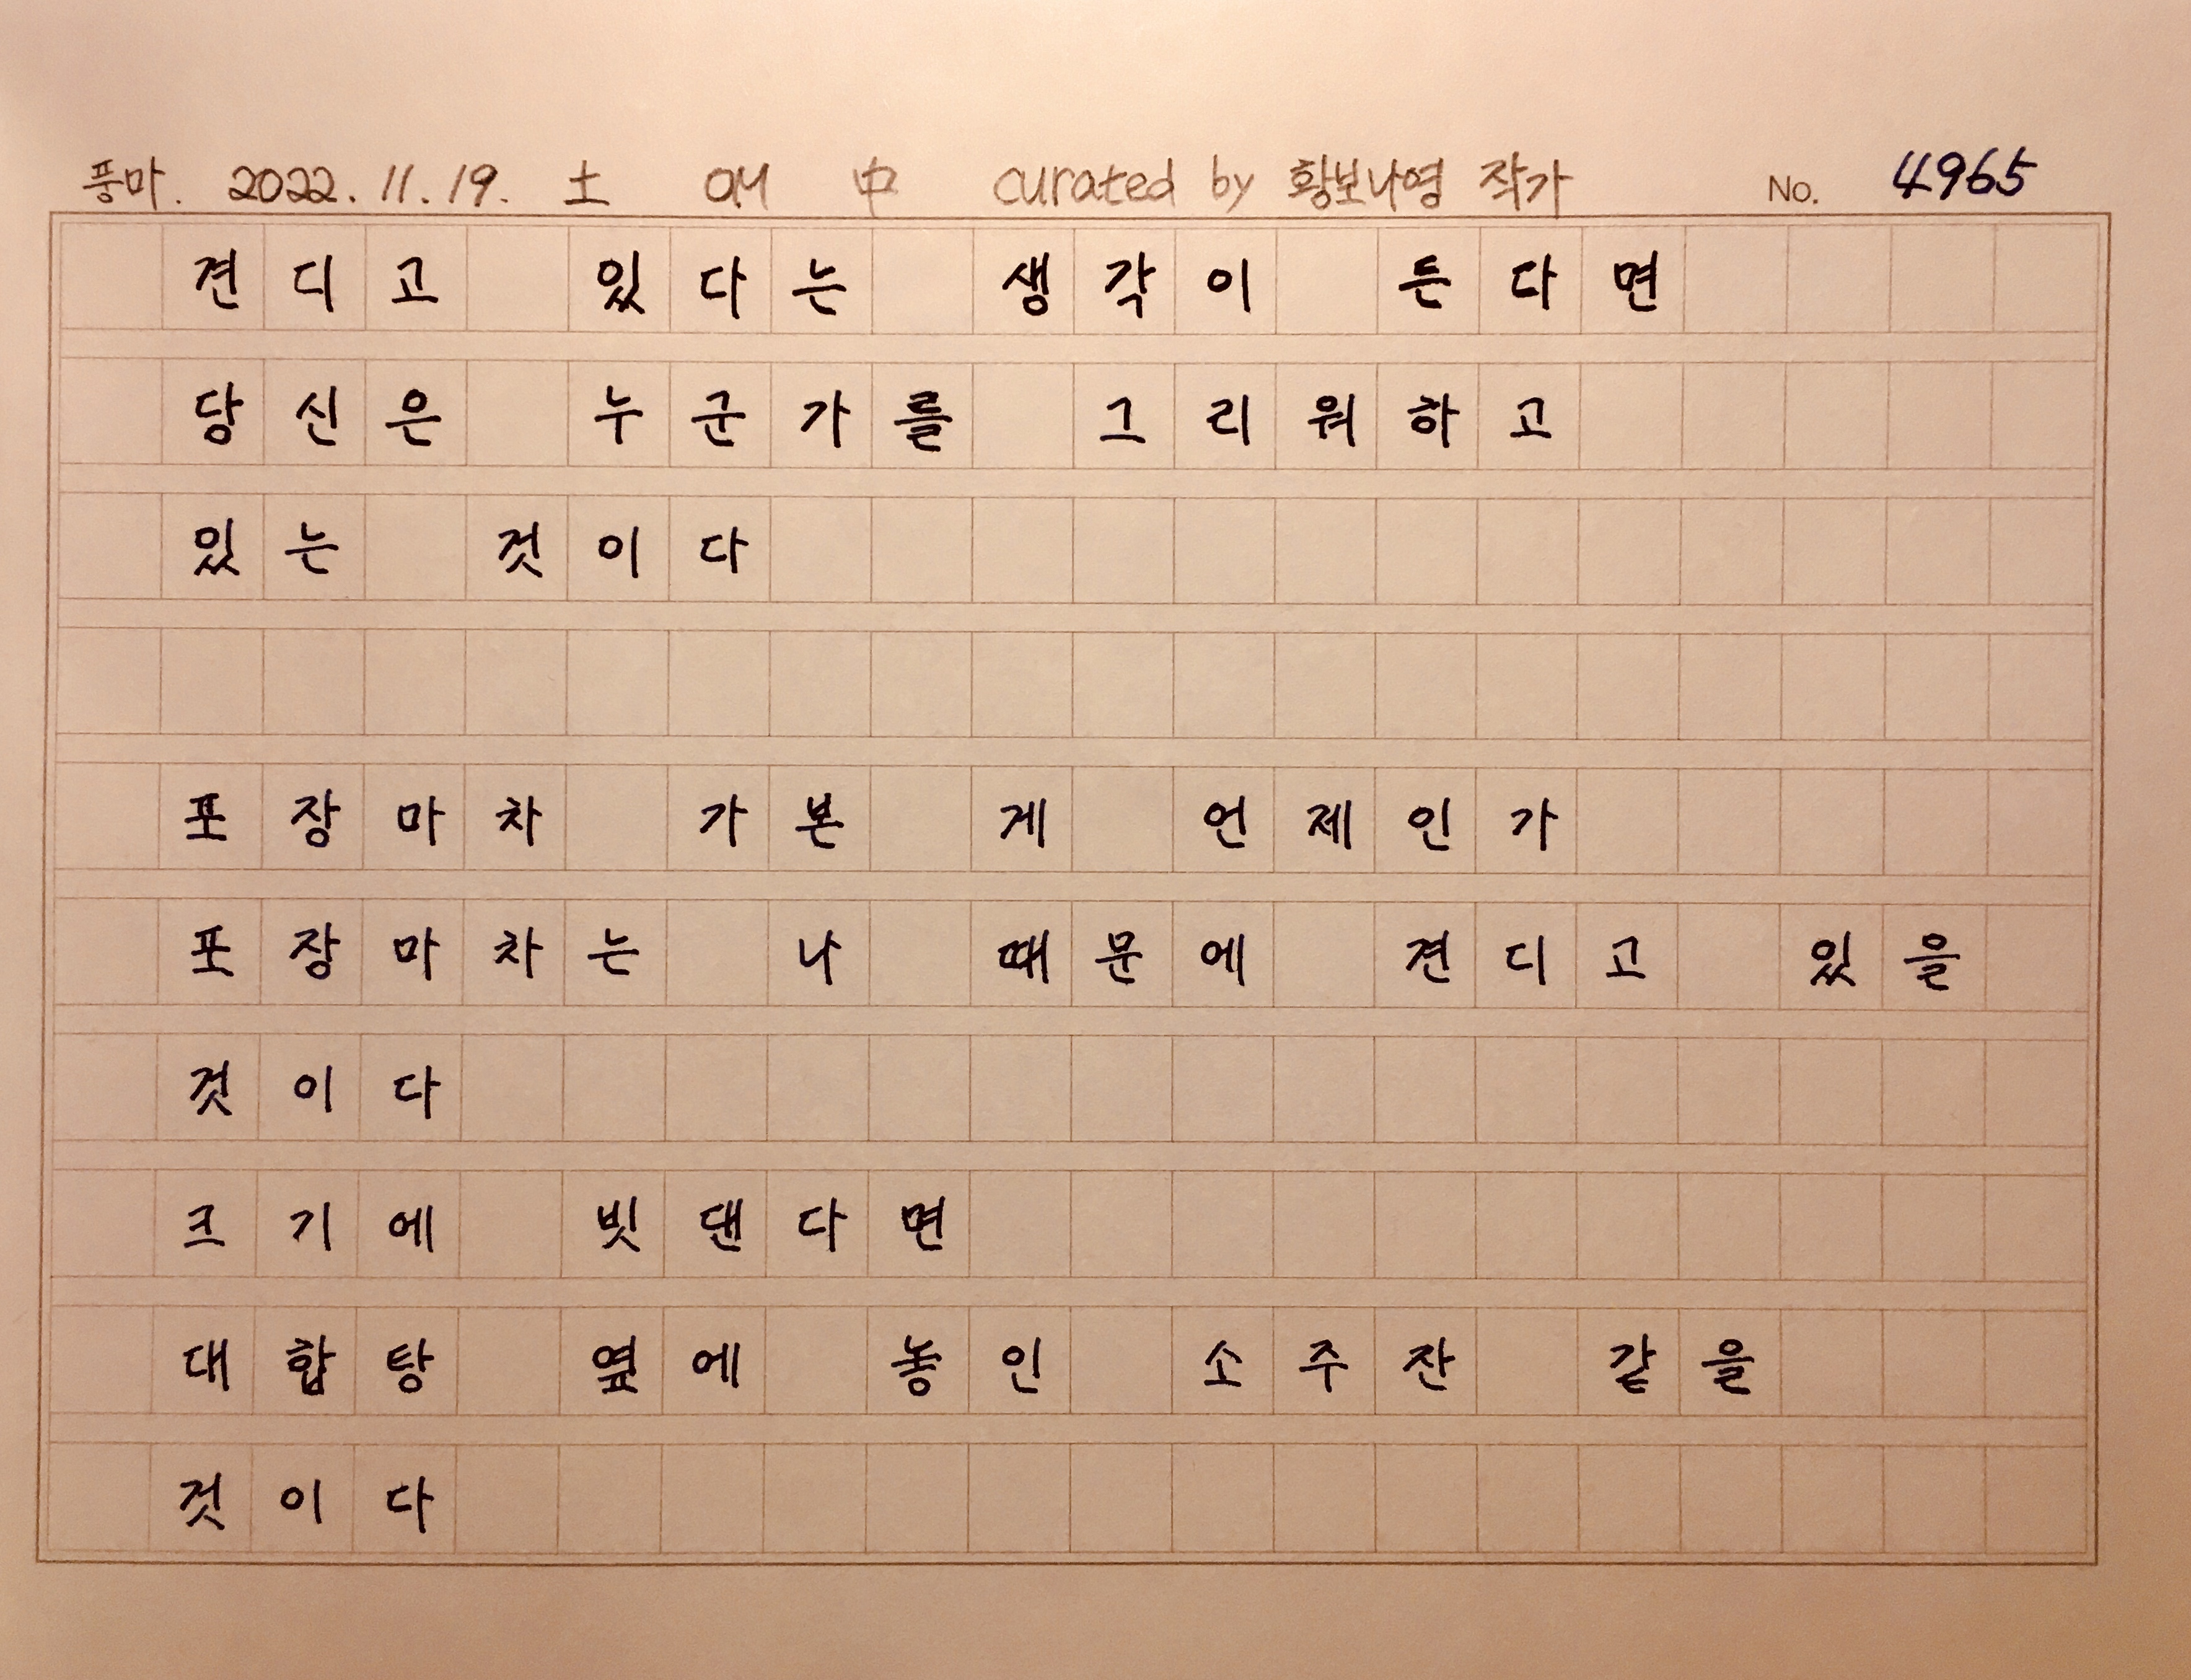 풍마. 2022. 11. 19. 土 에세 中 curated by 황보나영 작가 No. 4965
견디고 있다는 생각이 든다면
당신은 누군가를 그리워하고
있는 것이다
포장마차 가본 게 언제인가
포장마차는 나 때문에 견디고 있을
것이다
크기에 빗댄다면
대합탕 옆에 놓인 소주잔 같을
것이다